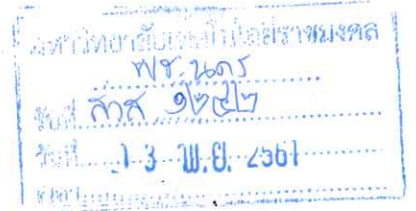 มหาวิทยาลัยเทคโนโลยีราชมงคล
พระนคร
รับที่ สวส ๑๒๕๒
วันที่ 13 พ.ย. 2561
เวลา